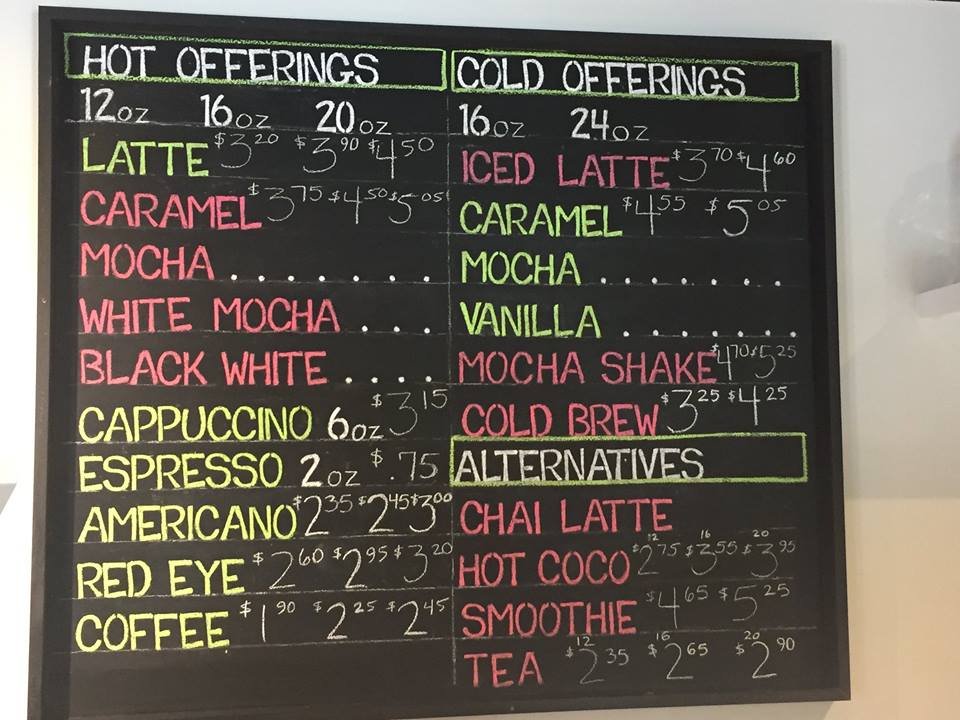 HOT OFFERINGS
12oz 16oz 20oz
LATTE $3.20 $3.90 $4.50
CARAMEL $3.75 $4.50 $5.05
MOCHA . . . . . . .
WHITE MOCHA . . .
BLACK WHITE . . . .
CAPPUCCINO 6oz $3.15
ESPRESSO 2oz $.75
AMERICANO $2.35 $2.45 $3.00
RED EYE $2.60 $2.95 $3.20
COFFEE $1.90 $2.25 $2.45
COLD OFFERINGS
16oz 24oz
ICED LATTE $3.70 $4.60
CARAMEL $4.55 $5.05
MOCHA . . . . . . .
VANILLA . . . . . . .
MOCHA SHAKE $4.70 $5.25
COLD BREW $3.25 $4.25
ALTERNATIVES
CHAI LATTE
HOT COCO 12 $2.75 16 $3.55 20 $3.95
SMOOTHIE $4.65 $5.25
TEA 12 $2.35 16 $2.65 20 $2.90